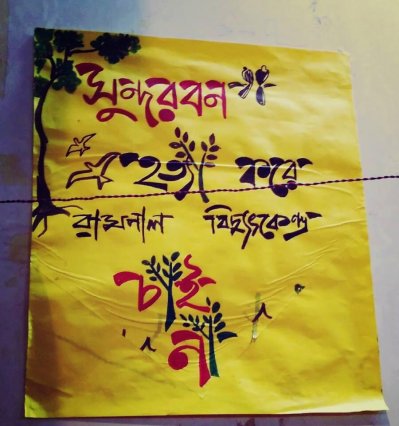 সুন্দরবন
হত্যা করে
রামপাল বিদ্যুৎকেন্দ্র
চাই
না